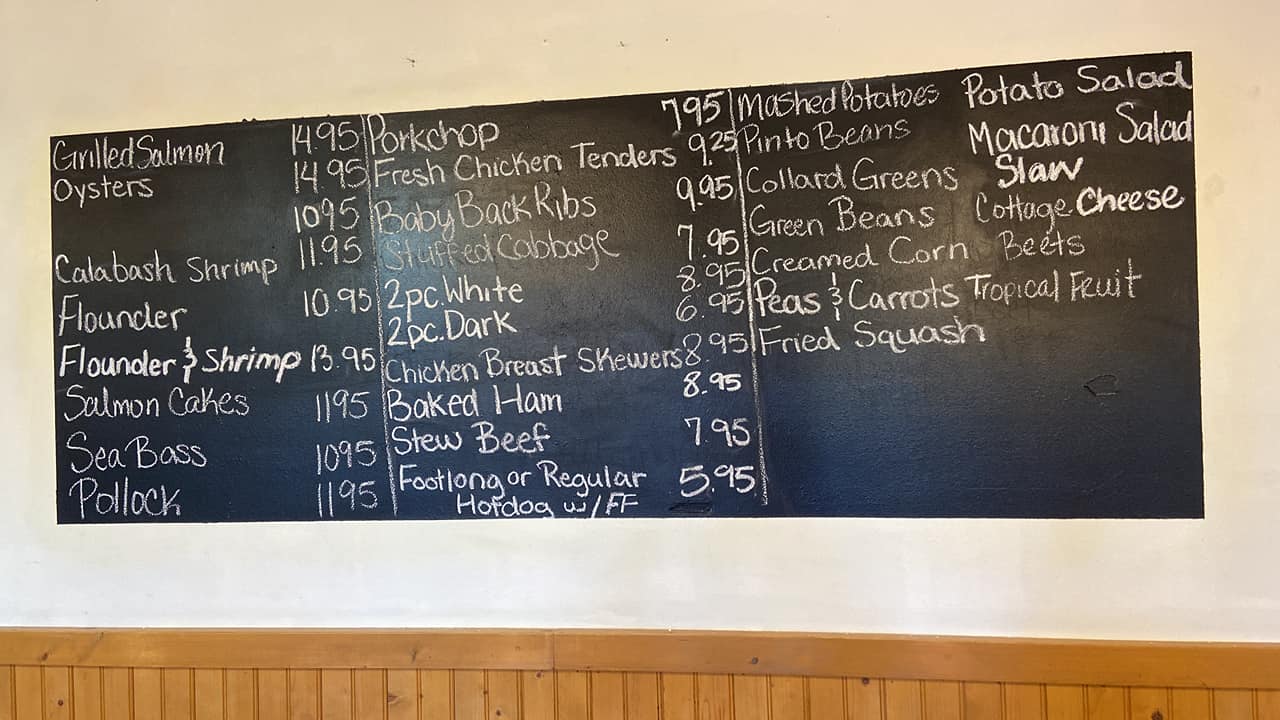 Grilled Salmon 14.95
Oysters 14.95
1095
Calabash Shrimp 11.95
Flounder 10.95
Flounder & Shrimp 13.95
Salmon Cakes 1195
Sea Bass 1095
Pollock 1195
Porkchop 795
Fresh Chicken Tenders 9.25
Baby Back Ribs 9.95
Stuffed Cabbage 7.95
2pc. White 8.95
2pc. Dark 6.95
Chicken Breast Skewers 8.95
Baked Ham 8.95
Stew Beef 7.95
Footlong or Regular 5.95
Hotdog w/FF
Mashed Potatoes
Pinto Beans
Collard Greens
Green Beans
Creamed Corn
Peas & Carrots
Fried Squash
Potato Salad
Macaroni Salad
Slaw
Cottage Cheese
Beets
Tropical Fruit